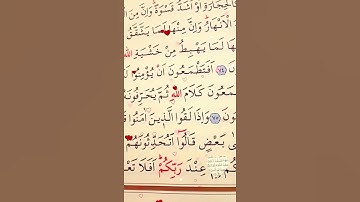 كَالْحِجَارَةِ اَوْ اَشَدُّ قَسْوَةًۜ وَاِنَّ مِنَ
الْاَنْهَارُۜ وَاِنَّ مِنْهَا لَمَا يَشَّقَّقُ
هَا لَمَا يَهْبِطُ مِنْ خَشْيَةِ اللّٰهِۜ
﴿٧٤﴾ اَفَتَطْمَعُونَ اَنْ يُؤْمِنُوا
مَعُونَ كَلَامَ اللّٰهِ ثُمَّ يُحَرِّفُونَهُ
﴿٧٥﴾ وَاِذَا لَقُوا الَّذ۪ينَ اٰمَنُوا قَا
ى بَعْضٍ قَالُٓوا اَتُحَدِّثُونَهُمْ
كُمْ عِنْدَ رَبِّكُمْۜ اَفَلَا تَعْ